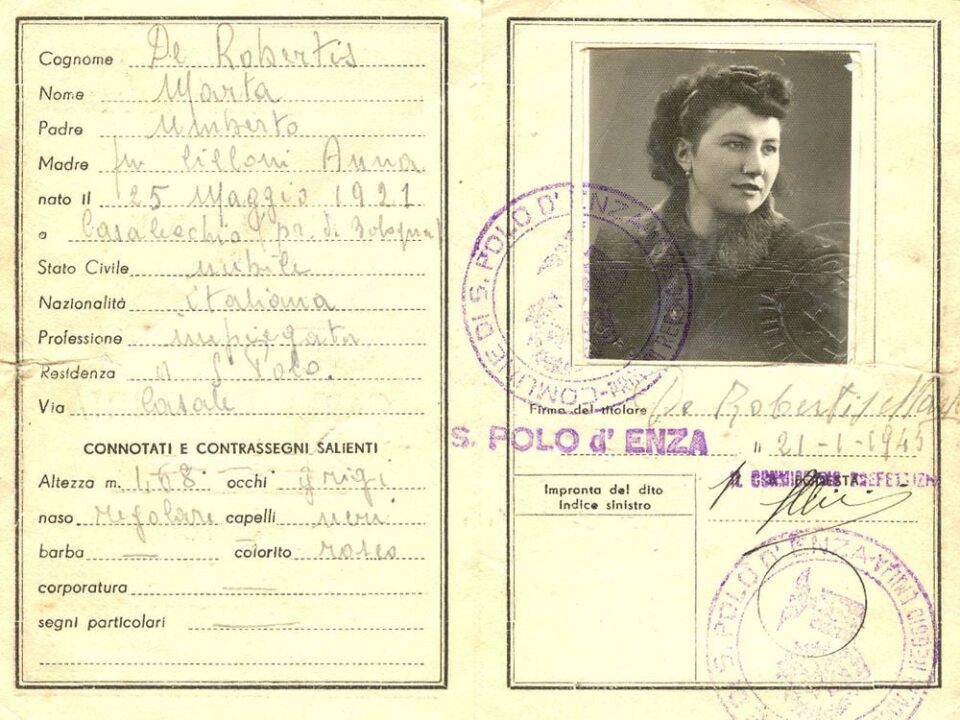 Cognome De Robertis
Nome Marta
Padre Umberto
Madre fu Cilloni Anna
nato Il 25 Maggio 1921
a Casalecchio (pr. di Bologna)
Stato Civile nubile
Nazionalità italiana
Professione impiegata
Residenza a S. Polo.
Via Casale
CONNOTATI E CONTRASSEGNI SALIENTI
Altezza m. 1,68 occhi grigi
naso regolare capelli neri
barba — colorito roseo
corporatura —
segni particolari —
COMUNE DI S. POLO D'ENZA
Firma del titolare De Robertis Marta
S. POLO d' ENZA 21-1-1945
IL COMMISSARIO PREFETTIZIO
Impronta del dito
Indice sinistro
S. POLO D'ENZA